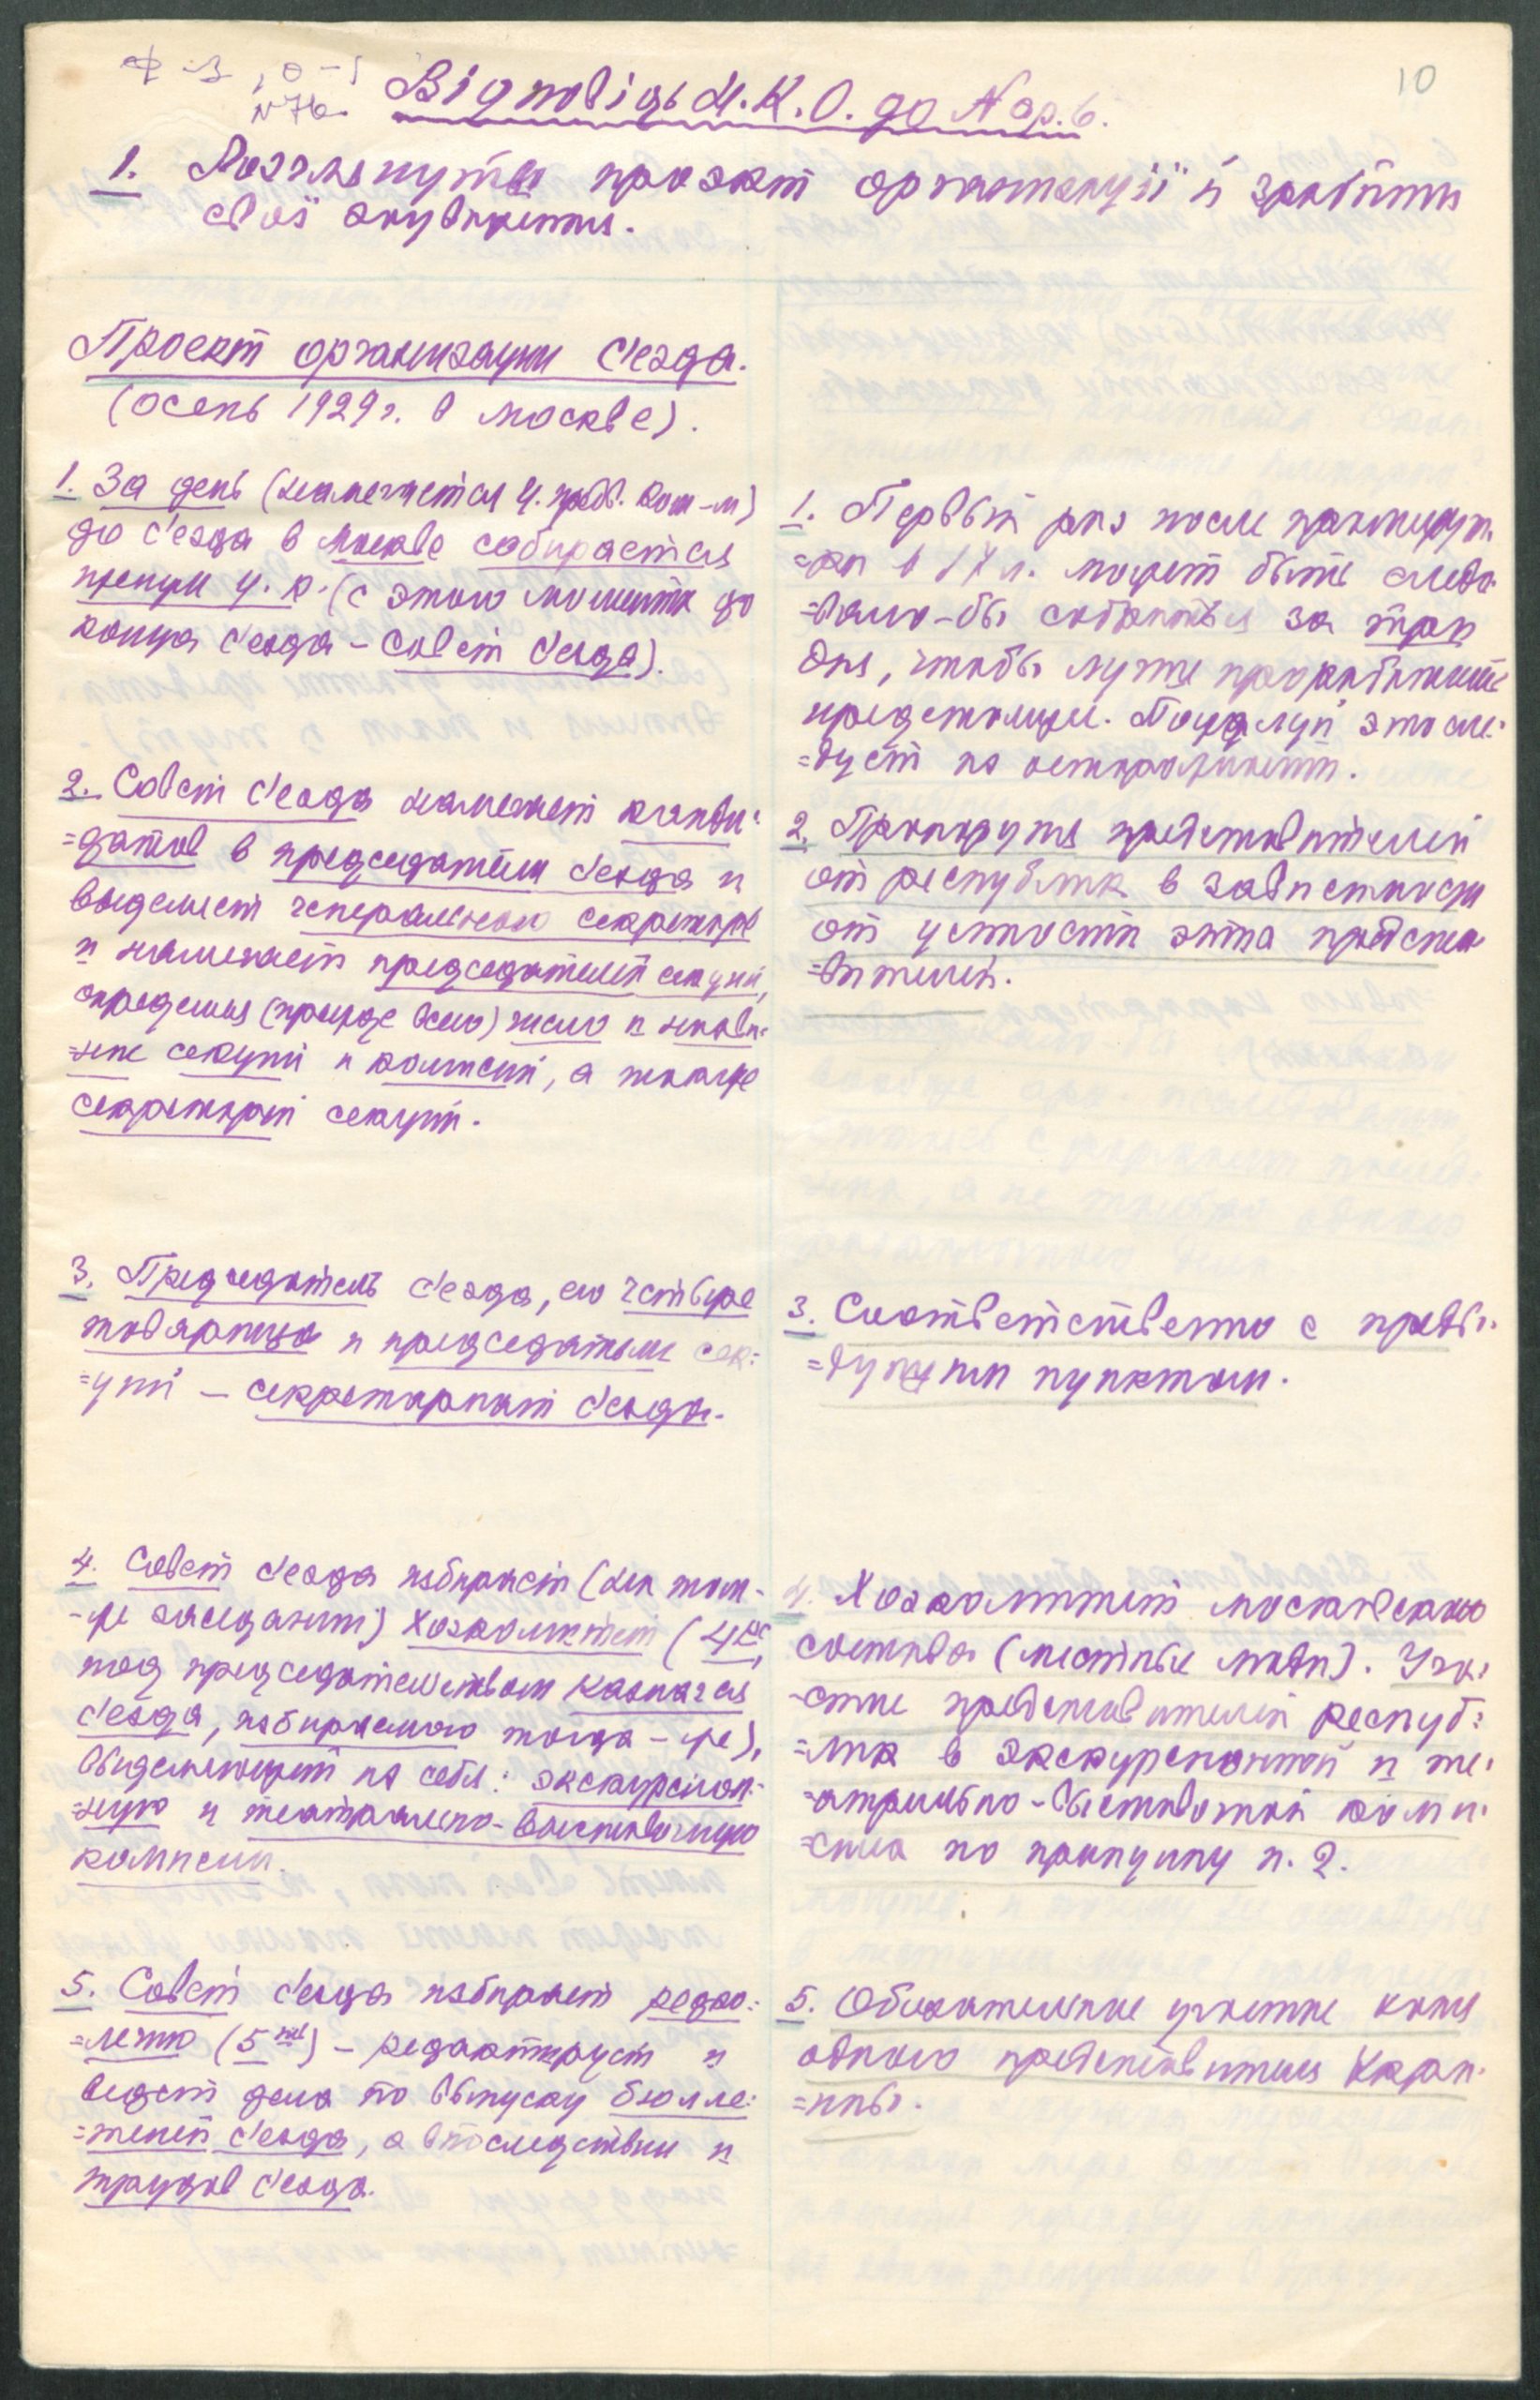 Ф-3, О-1
N 76.
10
Відповідь М.К.О. до N ор. 6.
1. Розглянути проэкт организації й зробити
свої зауваження.
Проект организации с'езда.
(осень 1929 г. в москве).
1. За день (намечается Ц. предв. Ком-м)
до с'езда в москве собирается
пленум Ц. К. (с этого момента до
конца с'езда - Совет с'езда).
2. Совет с'езда намечает канди-
=датов в председатели с'езда и
выделяет генерального секретаря
и намечает председателей секций,
определяя (прежде всего) число и назва-
=ние секций и комиссий, а также
секретарей секций.
3. Председатель с'езда, его четверо
товарища и председатели сек-
=ций - секретариат с'езда.
4. Совет с'езда избирает (на том-
-же заседании) Хозкомитет (4 ,
под председательством казначея
с'езда, избираемого тогда-же),
выделяющий из себя: экскурсион-
=ную и театрально-выставочную
комиссии.
5. Совет с'езда избирает редко-
=легию (5 ) - редактирует и
ведет дела по выпуску бюлле-
=теней с'езда, а впоследствии и
трудов с'езда.
1. Первый раз после
в 17 г. может быть следо-
=вало-бы собраться за три
дня, чтобы лучше проработать
предстоящее. Пожалуй это сле-
=дует
2. Пропорция представителей
от республик в зависимости
от ценности этта предста-
=вителей.
3. Соответственно с преды-
=дущим пунктом.
4. Хозкомитет московского
состава (местные люди). Уча-
-стие представителей респуб-
=лик в экскурсионной и те-
-атрально-выставочной коми-
-сиях по принципу п. 2.
5. Обязательное участие хотя
одного представителя Украи-
=ны.